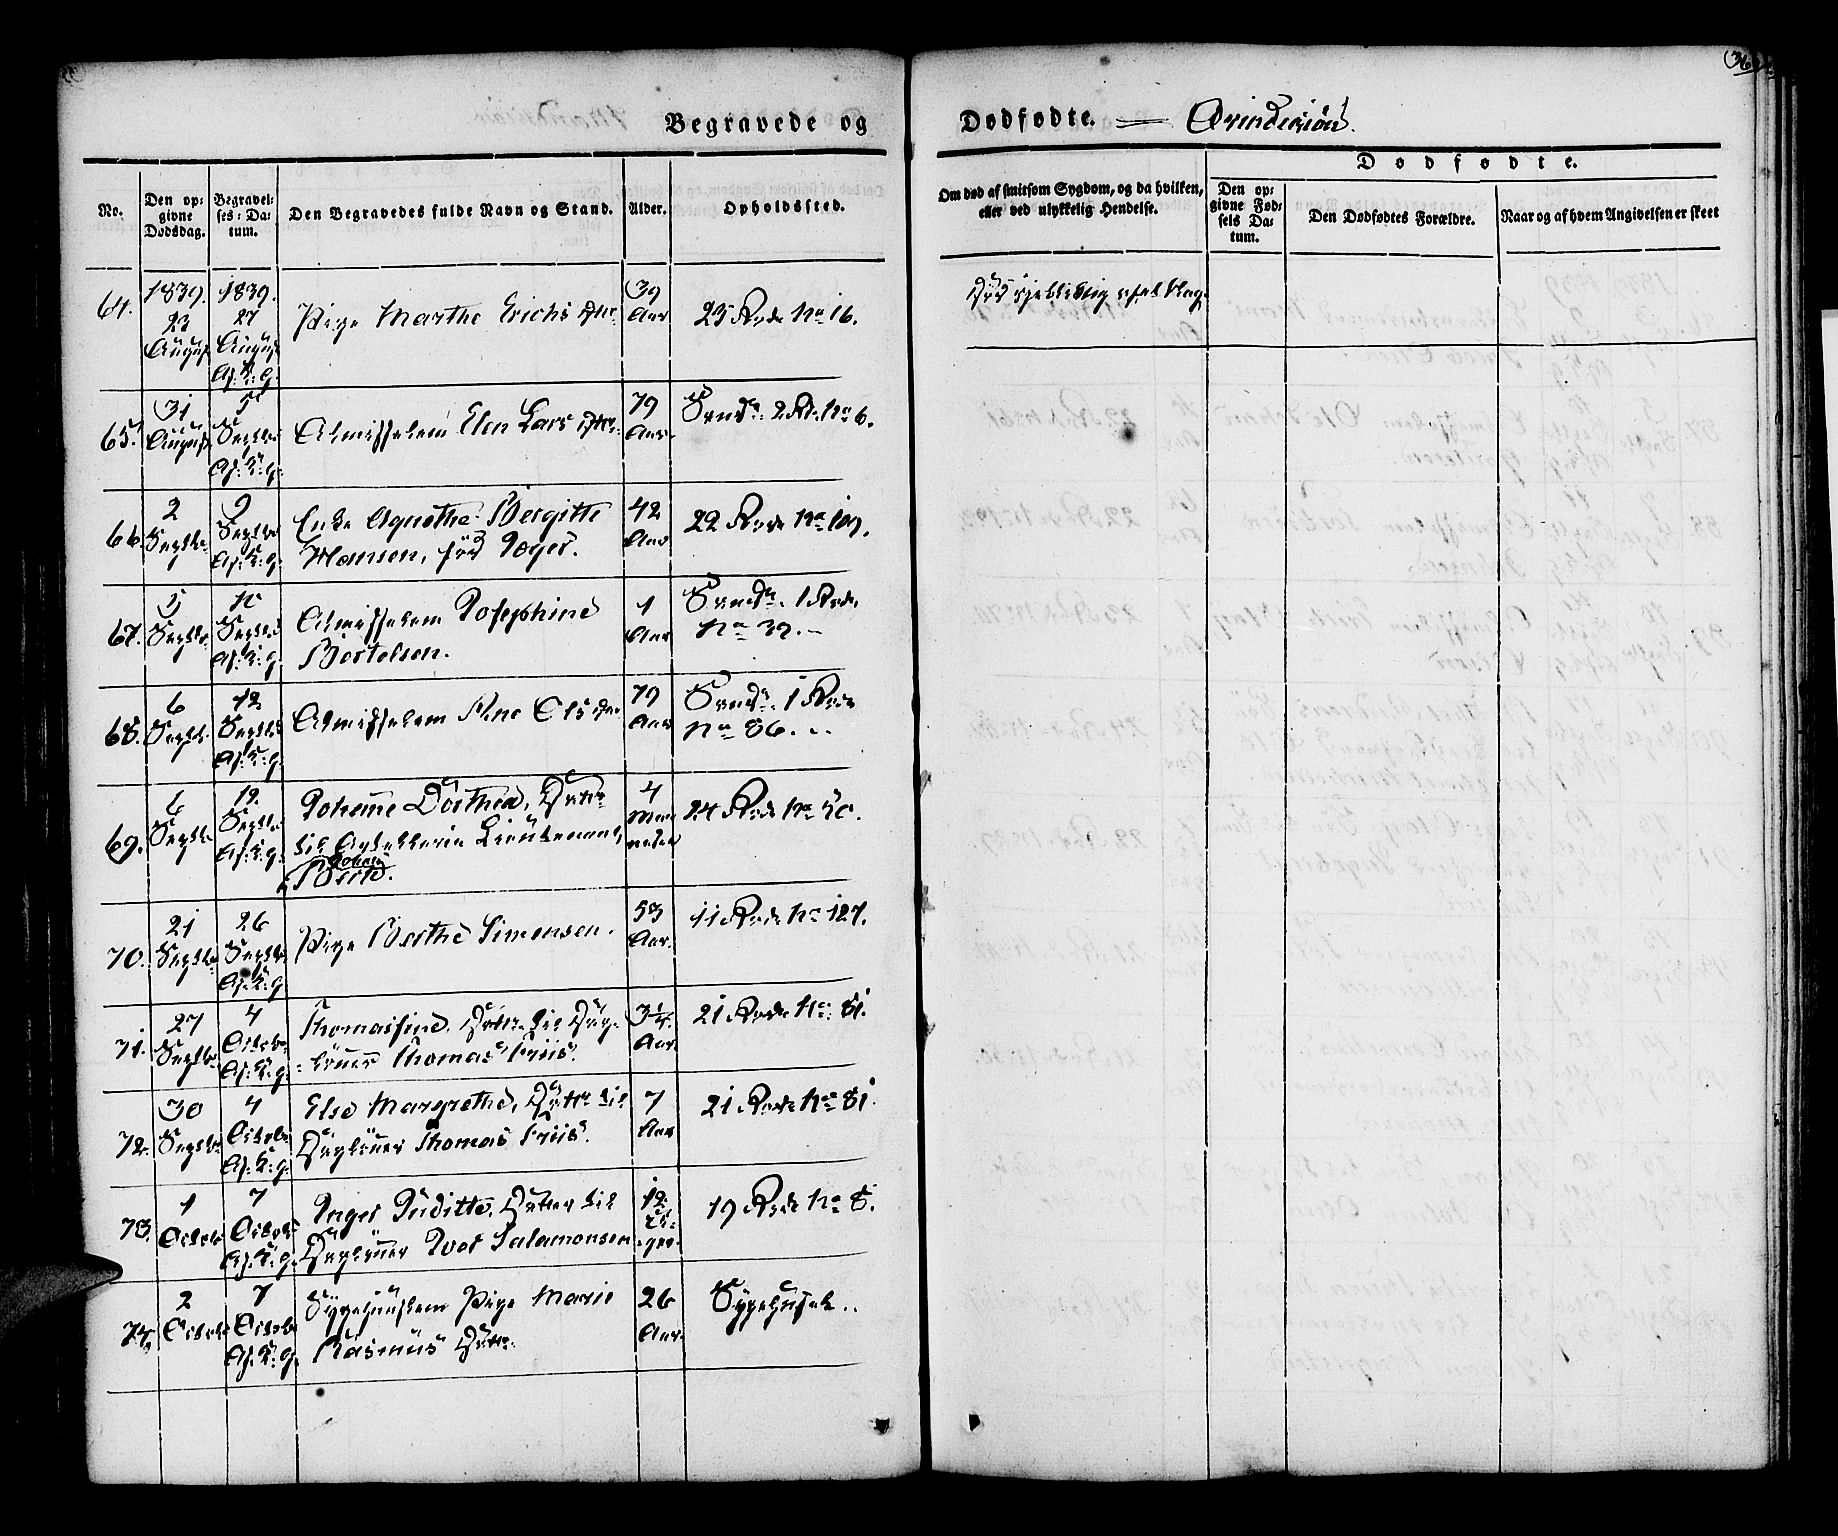 Begravede og Dødfødte. — Qvindekiøn.
No.
Den opgivne Dødsdag.
Begravelses-Datum.
Den Begravedes fulde Navn og Stand.
Alder.
Opholdssted.
Om død af smitsom Sygdom, og da hvilken,
eller ved ulykkelig Hendelse.
Dødfødte.
Den opgivne Fødsels Datum.
Den Dødfødtes Forældre.
Naar og af hvem Angivelsen er skeet
64. 1839. 23 August 1839. 27 August Af: K: g: Pige Marthe Erichs Dtr 39 Aar 23 Rode No 16.
65. 31 August 5 Septbr Af: K: g: Almisselem Elen Lars Dtr. 79 Aar. Sands. 2 R. No 6.
66. 2 Septbr. 9 Septbr Af: K: g: Enke Agnethe Bergitte
Hansen, fød Poger. 42 Aar 22 Rode No 109.
67. 5 Septbr. 10 Septbr Af: K: g: Almisselem Josephine
Bertelsen. 1 Aar Sands. 1 Rode
No 39.
68. 6 Septbr. 12 Septbr Af: K: g: Almisselem Ane Ols Dtr 79 Aar Sands. 1 Rode
No 86.
69. 6 Septbr 12. Septbr Af: K: g: Johanne Dorthea, Datter
til Artellerie Lieutenant
Johan 4 Maaneder 24 Rode No 50.
70. 21 Septbr 26 Septbr Af: K: g: Pige Berthe Simonsen. 53 Aar. 11 Rode No 127.
71. 27 Septbr 4 Octobr Af: K: g: Thomassine, Datter til Dag-
lønner Thomas Friis. 3 1/4 Aar. 21 Rode No 81.
72. 30 Septbr 4 Octobr Af: K: g: Else Margrethe, Datter til
Daglønner Thomas Friis. 7 Aar 21 Rode No 81.
73. 1 Octobr 7 Octobr Af: K: g. Inger Juditte, Datter til
Daglønner Iver Salamonsen 12 Uger 19 Rode No 8.
74. 2 Octobr 7 Octobr Af: K: g. Sygehuuslem Pige Marie
Rasmus Datter. 26 Aar. Sygehuset.